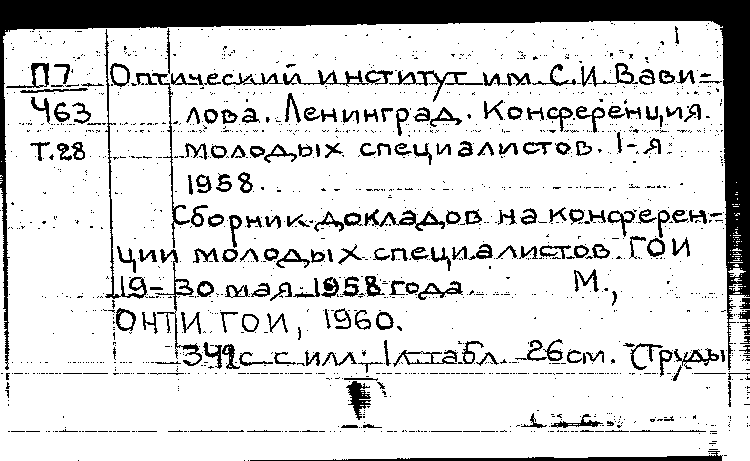 1
П7 Оптический институт им. С.И. Вави-
Ч63 лова. Ленинград. Конференция
Т.28 молодых специалистов. I-я.
1958.
Сборник докладов на конферен-
ции молодых специалистов ГОИ
19-30 мая 1958 года. М.,
ОНТИ ГОИ, 1960.
с илл; 1 л. табл. 26см. (Труды